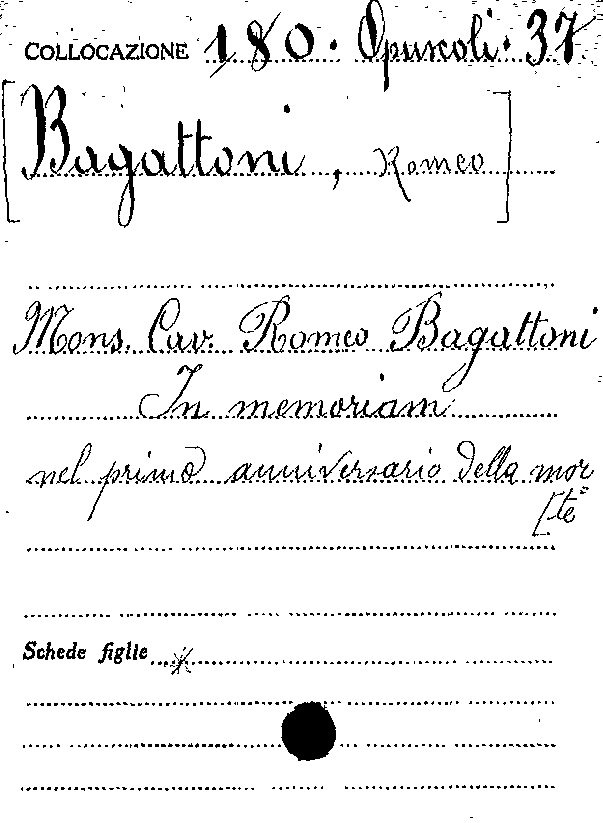 COLLOCAZIONE 180. Opuscoli. 37
[Bagattoni, Romeo]
Mons. Cav. Romeo Bagattoni
In memoriam
nel primo anniversario della mor
[te
Schede figlie